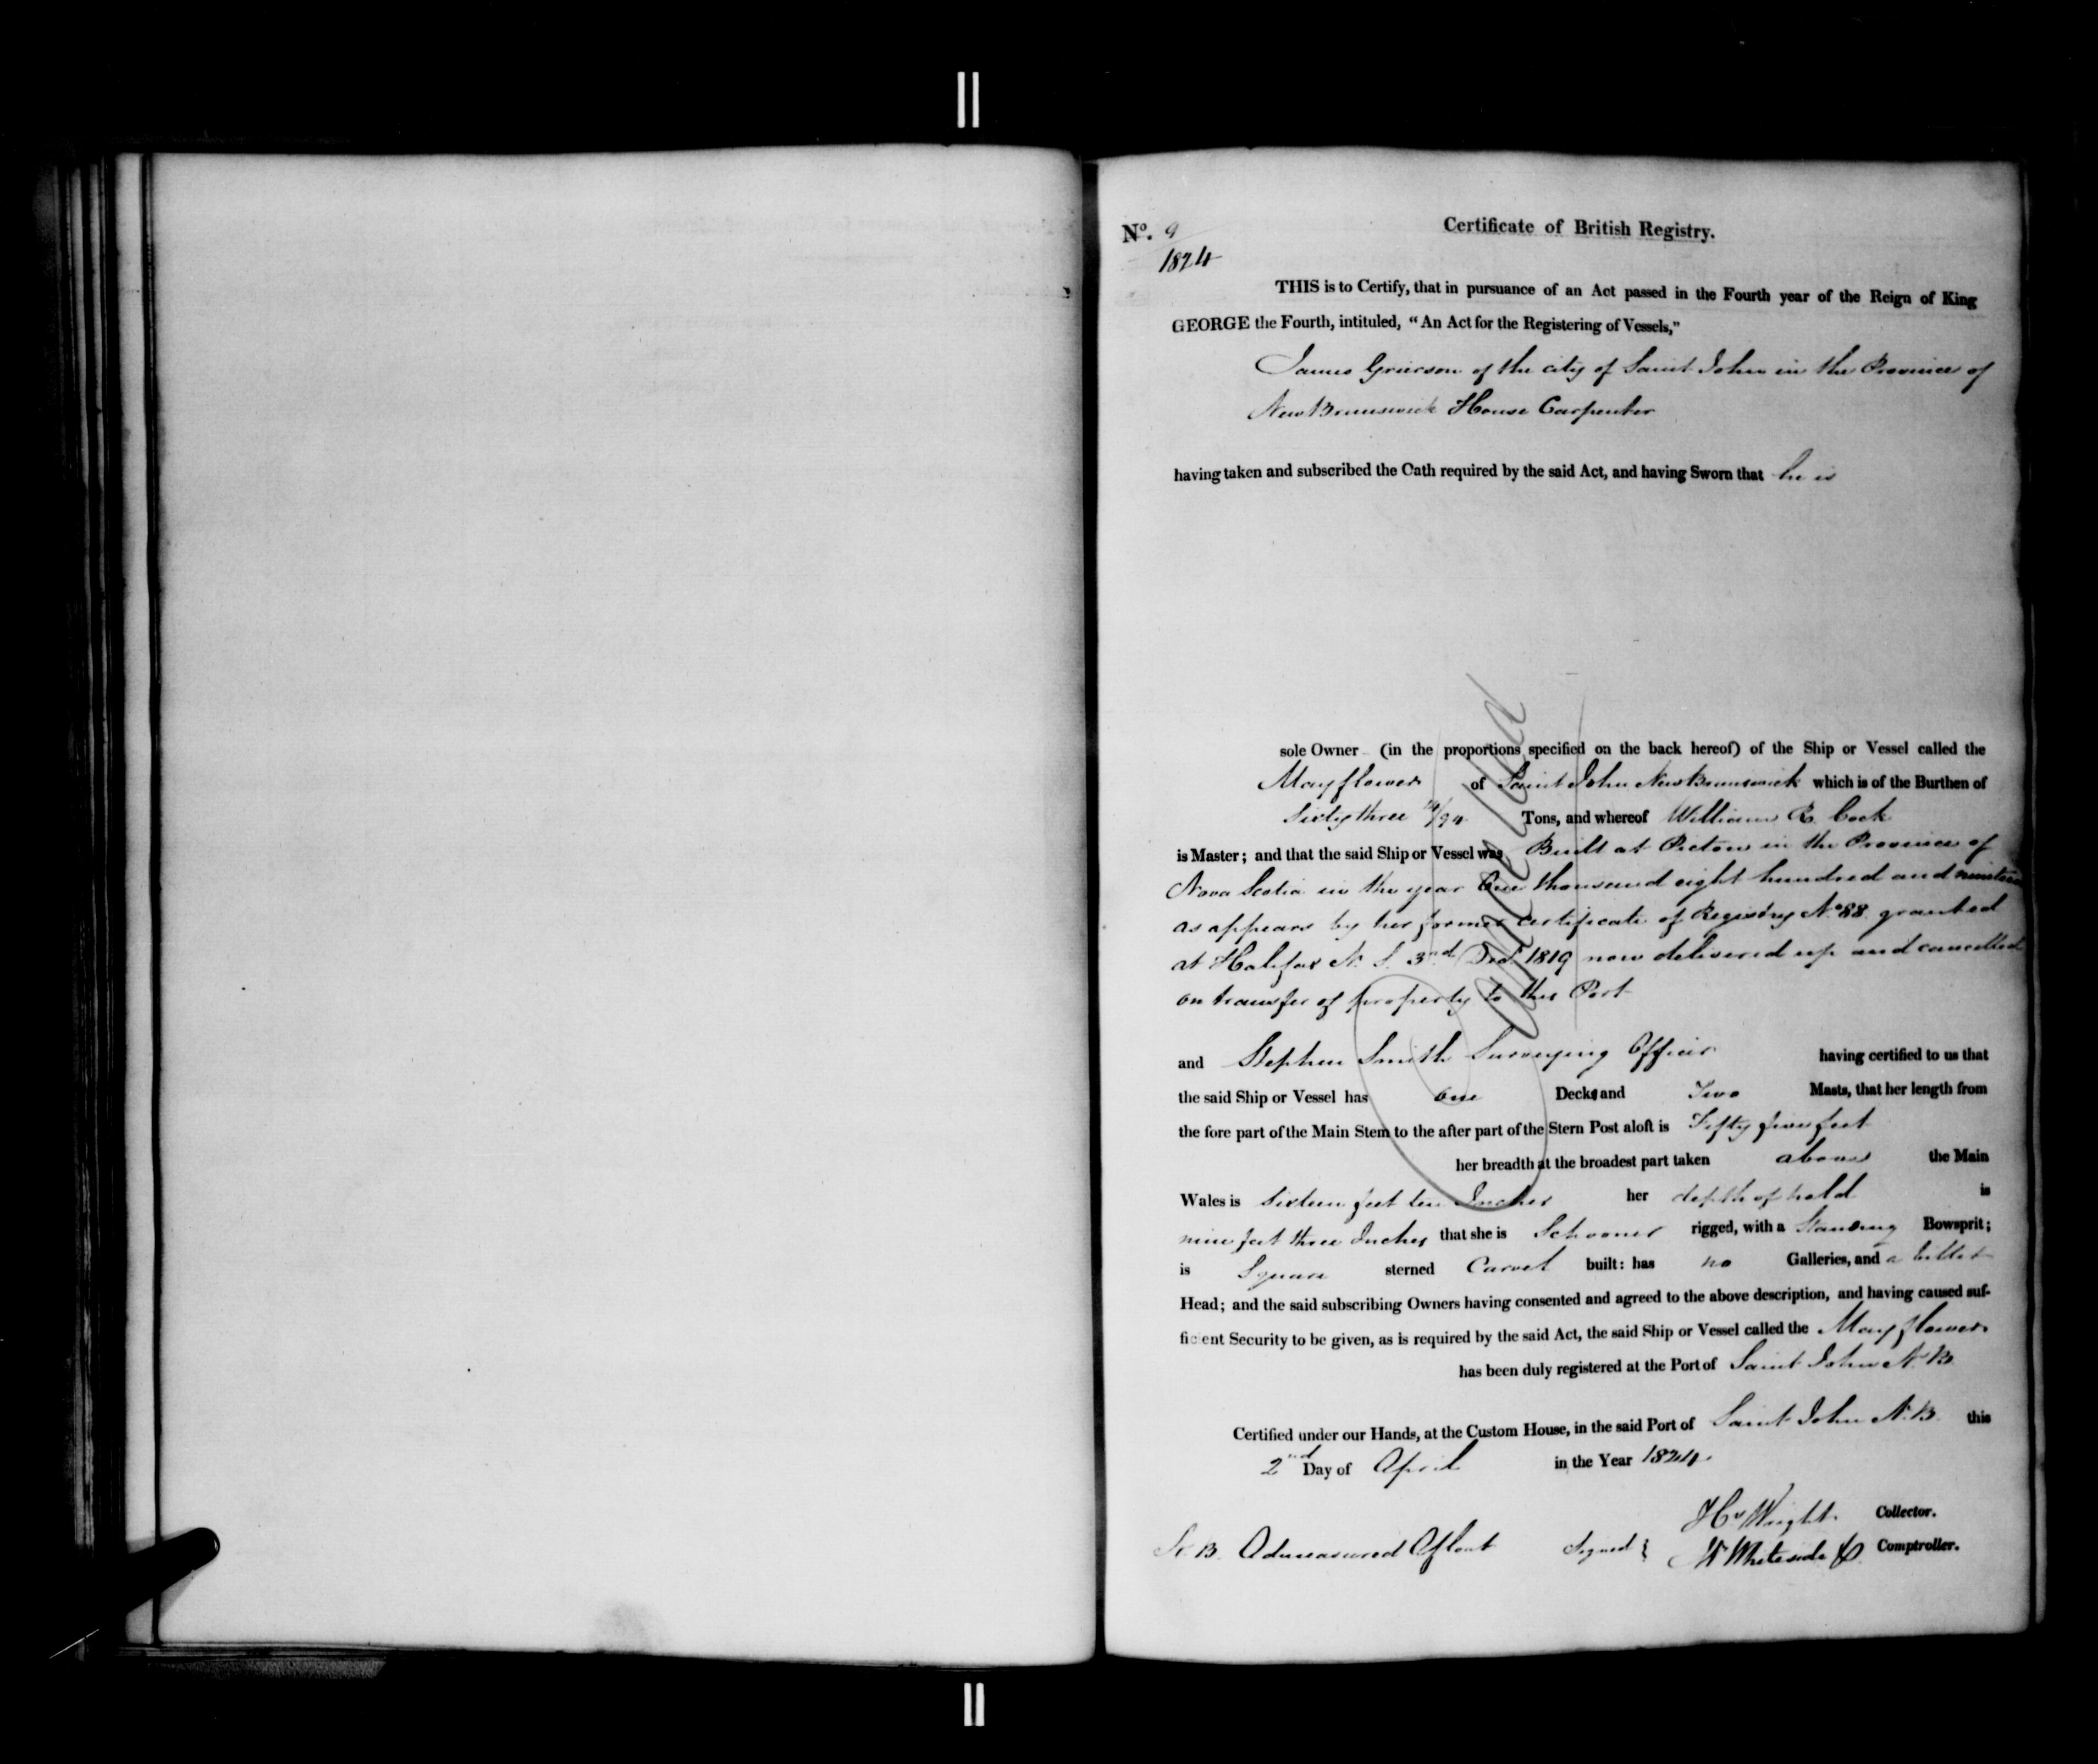 Nº. 9
1824
Certificate of British Registry.
THIS is to Certify, that in pursuance of an Act passed in the Fourth year of the Reign of King
GEORGE the Fourth, intituled, "An Act for the Registering of Vessels,"
James Grierson of the city of Saint John in the Province of
New Brunswick House Carpenter
having taken and subscribed the Oath required by the said Act, and having Sworn that he is
sole Owner (in the proportions specified on the back hereof) of the Ship or Vessel called the
Mayflower of Saint John New Brunswick which is of the Burthen of
Sixty three /94 Tons, and whereof William R. Cock
is Master; and that the said Ship or Vessel was Built at Pictou in the Province of
Nova Scotia in the year One thousand eight hundred and nineteen
as appears by her former certificate of Registry No 88 granted
at Halifax N. S. 3rd 1819 now delivered up and cancelled
on transfer of property to this Port
Cancelled
and Stephen Smith Surveying Officer having certified to us that
the said Ship or Vessel has One Deck and Two Masts, that her length from
the fore part of the Main Stem to the after part of the Stern Post aloft is Fifty five feet
her breadth at the broadest part taken above the Main
Wales is Sixteen feet ten Inches her depth of hold is
nine feet three Inches that she is Schooner rigged, with a Standing Bowsprit;
is Square sterned Carvel built: has no Galleries, and a billet
Head; and the said subscribing Owners having consented and agreed to the above description, and having caused suf-
ficient Security to be given, as is required by the said Act, the said Ship or Vessel called the Mayflower
has been duly registered at the Port of Saint John N. B.
Certified under our Hands, at the Custom House, in the said Port of Saint John N. B. this
2nd Day of April in the Year 1824.
Hy Wright Collector.
N. B. Admeasured Afloat Signed { W Whiteside Comptroller.